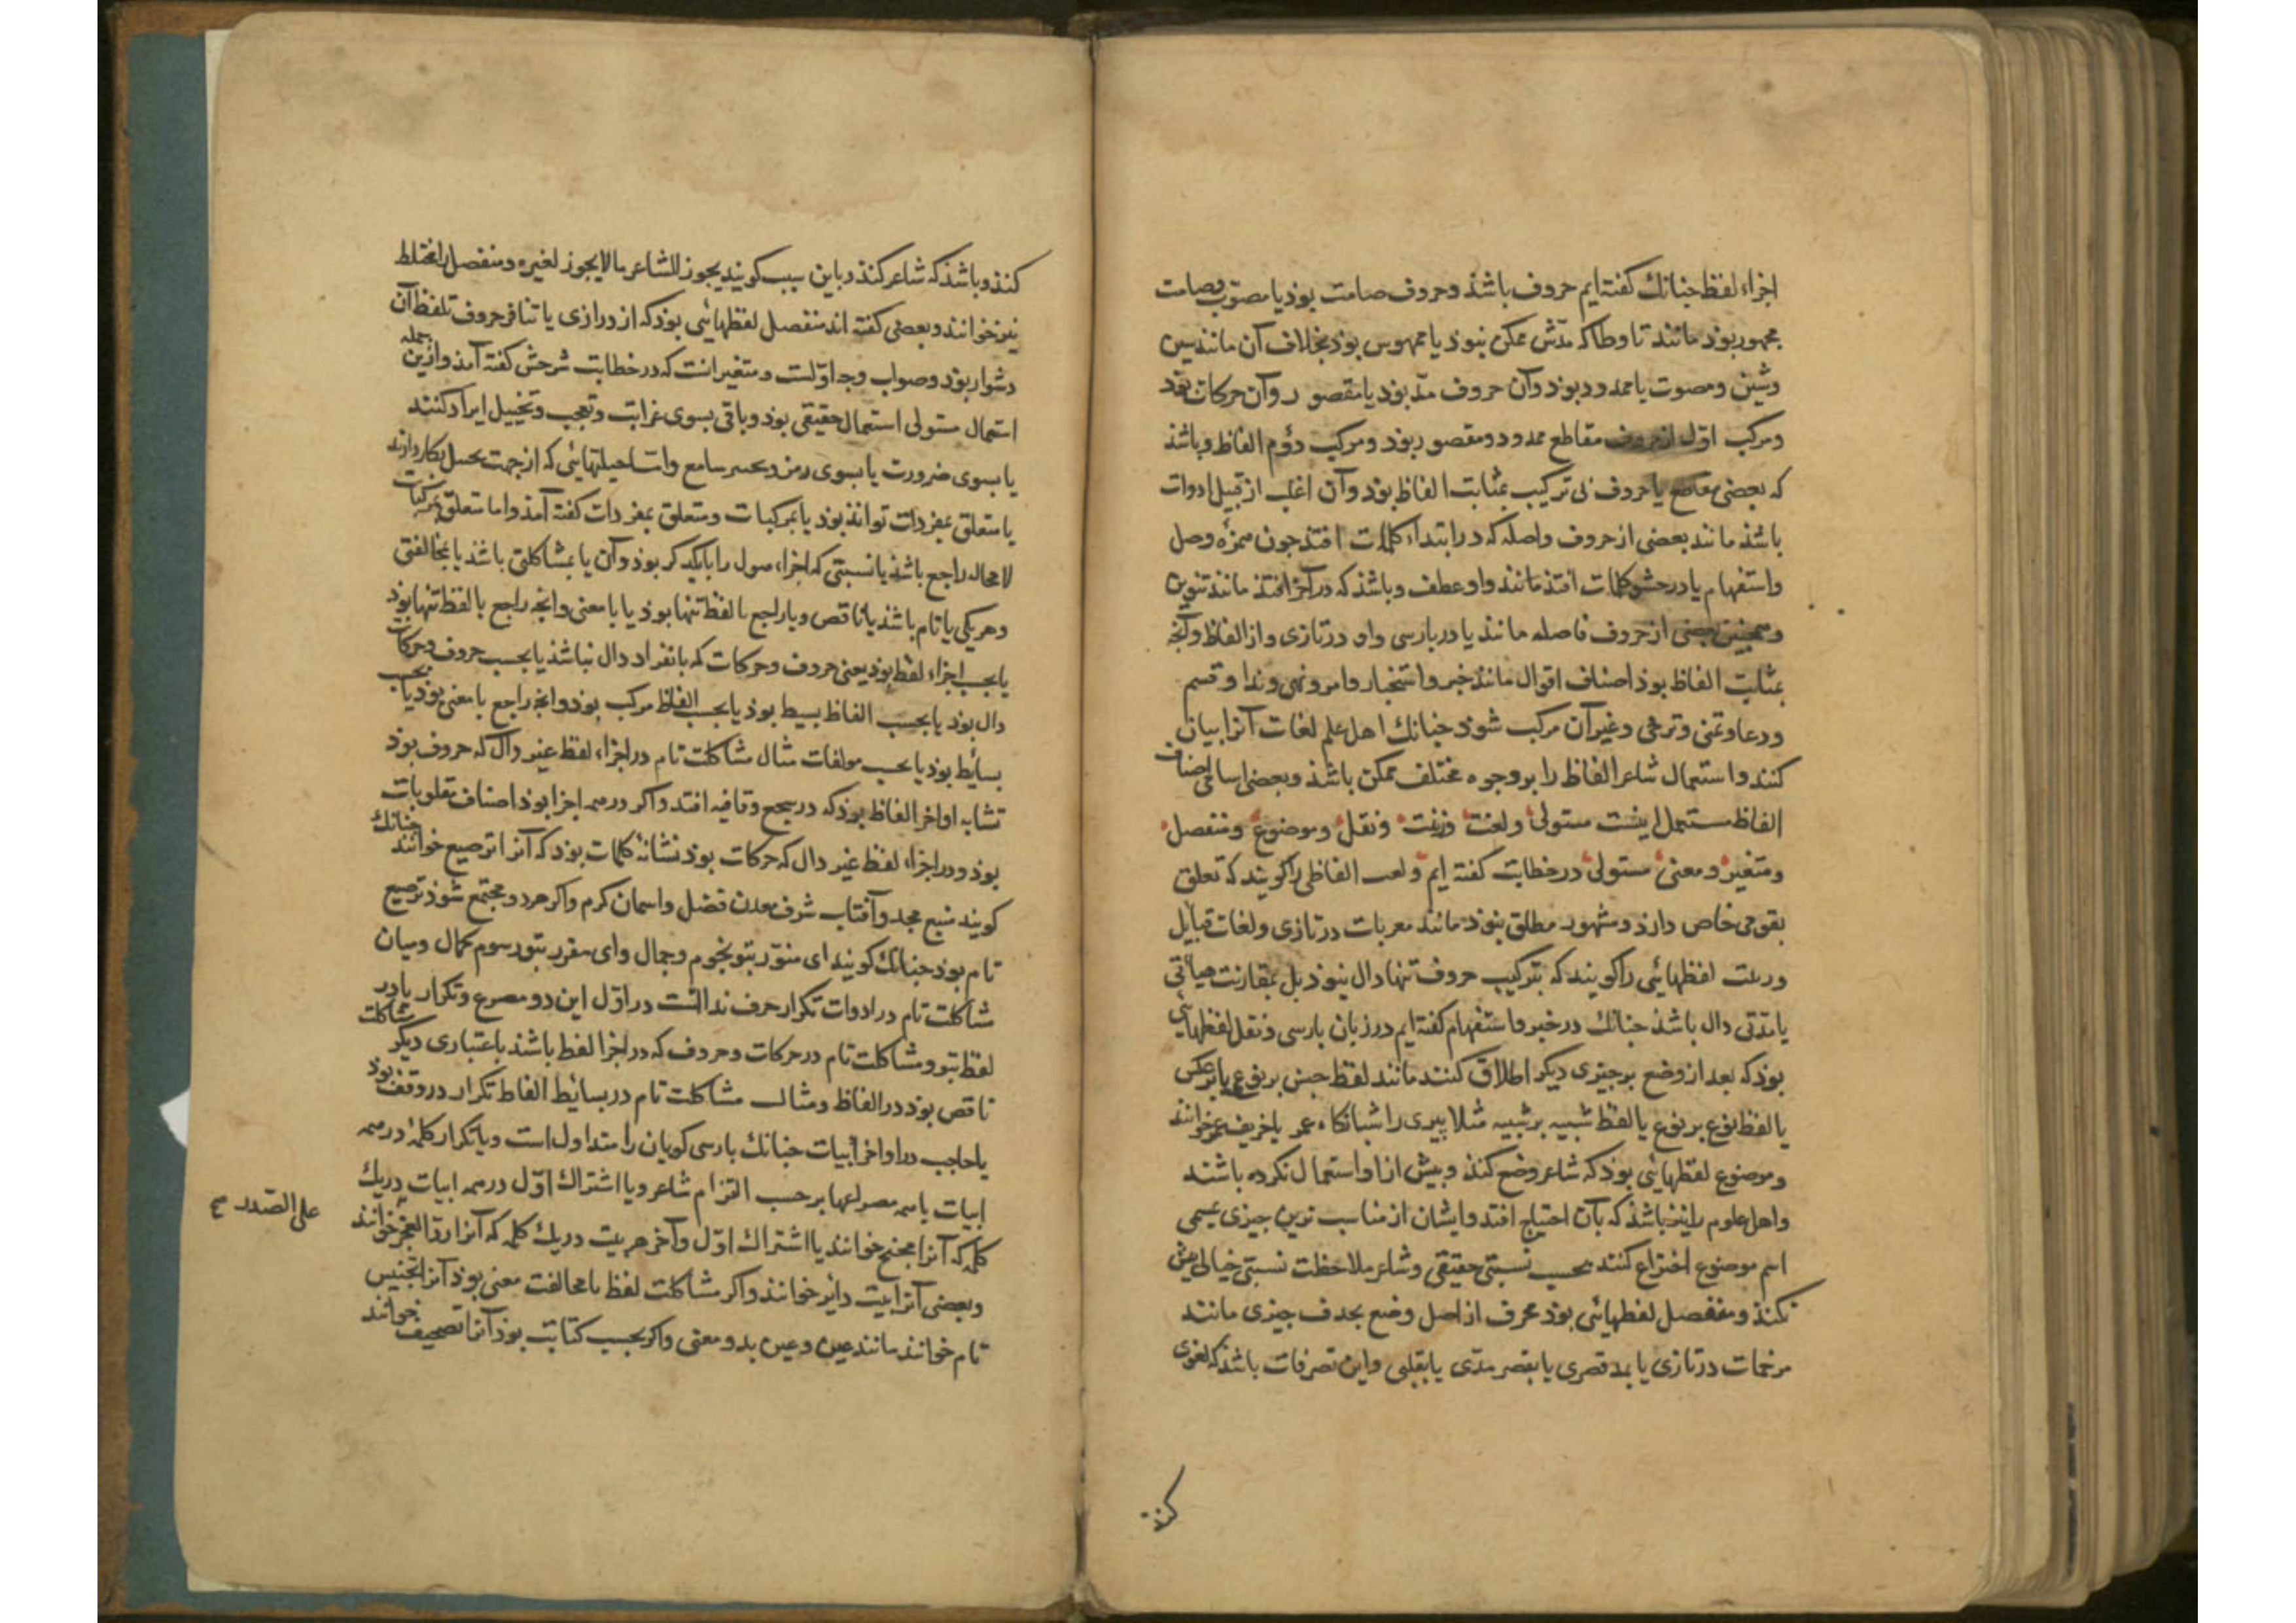 اجزاء لفظ جنانك كفته ایم حروف باشذ وحروف صامت بوذ یا مصوت وصامت
مجهور بوذ مانند تا وطا كه مدّش ممكن نبوذ یا مهموس بوذ بخلاف آن مانند سین
وشین ومصوت یا ممدود بوذ وآن حروف مدّ بوذ یا مقصور وآن حركات بوذ
ومركب اوّل از حروف مقاطع ممدود ومقصور بوذ ومركب دوّم الفاظ وباشذ
كه بعضی مقاطع یا حروف بی تركیب بمثابت الفاظ بوذ وآن اغلب از قبیل ادوات
باشذ مانند بعضی از حروف واصله كه در ابتداء كلمات افتذ جون همزه وصل
واستفهام یا در حشو كلمات افتذ مانند واو عطف وباشذ كه در آخر افتذ مانند تنوین
وهمجنین بعضی از حروف فاصله مانند یا در بارسی واو در تازی واز الفاظ وآنجه
بمثابت الفاظ بوذ اصناف اقوال مانند خبر واستخبار وامر ونهی وندا وقسم
ودعا وتمنی وترجی وغیر آن مركب شوذ جنانك اهل علم لغات آنرا بیان
كنند واستعمال شاعر الفاظ را بر وجوه مختلف ممكن باشذ وبعضی اسامی اصناف
الفاظ مستعمل اینست مستولی ولغت وزینت ونقل وموضوع ومنفصل
ومتغیر ومعنی مستولی در خطابت كفته ایم ولعب الفاظی را كویند كه تعلق
بقومی خاص دارذ ومشهور مطلق نبوذ مانند معربات در تازی ولغات قبایل
وزینت لفظهائی را كویند كه بتركیب حروف تنها دال نبوذ بل بمقارنت هیأتی
یا مدّتی دال باشذ جنانك در خبر واستفهام كفته ایم در زبان بارسی ونقل لفظهائی
بوذ كه بعد از وضع بر جیزی دیكر اطلاق كنند مانند لفظ جنس بر نوع یا برعكس
یا لفظ نوع بر نوع یا لفظ شبیه بر شبیه مثلا بیری را شبانكاه عمر یا خریف عمر خوانند
وموضوع لفظهائی بوذ كه شاعر وضع كنذ وبیش از او استعمال نكرده باشند
واهل علوم را نیز باشذ كه بآن احتیاج افتد وایشان از مناسب ترین جیزی بمسمی
اسم موضوع اختراع كنند بحسب نسبتی حقیقی وشاعر ملاحظت نسبتی خیالی بیش
نكنذ ومنفصل لفظهائی بوذ محرف از اصل وضع بحذف جیزی مانند
مرخمات در تازی یا بمد قصری یا بقصر مدّی یا بقلبی واین تصرفات باشذ كه لغوی
كنذ
كنذ وباشذ كه شاعر كنذ وباین سبب كویند یجوز للشاعر ما لا یجوز لغیره ومنفصل را مختلط
نیز خوانند وبعضی كفته اند منفصل لفظهائی بوذ كه از درازی یا تنافر حروف تلفظ آن
دشوار بوذ وصواب وجه اوّلست ومتغیر انست كه در خطابت شرحش كفته آمذ وازین جمله
استعمال مستولی استعمال حقیقی بوذ وباقی بسوی غرابت وتعجب وتخییل ایراد كنند
یا بسوی ضرورت یا بسوی رمز وتحیر سامع واما حیلتهائی كه از جهت تخییل بكار دارند
یا متعلق بمفردات تواند بوذ یا بمركبات ومتعلق بمفردات كفته آمذ واما متعلق بمركبات
لا محاله راجع باشذ یا نسبتی كه اجزاء قول را با یكدیكر بوذ وآن یا بمشاكلتی باشذ یا بمخالفتی
وهر یكی یا تام باشذ یا ناقص ویا راجع با لفظ تنها بوذ یا با معنی وانجه راجع با لفظ تنها بوذ
یا بحسب اجزاء لفظ بوذ یعنی حروف وحركات كه بانفراد دال نباشذ یا بحسب حروف وحركات
دال بوذ یا بحسب الفاظ بسیط بوذ یا بحسب الفاظ مركب بوذ وانجه راجع با معنی بوذ یا بحسب
بسائط بوذ یا بحسب مولفات مثال مشاكلت تام در اجزاء لفظ غیر دال كه حروف بوذ
تشابه اواخر الفاظ بوذ كه در سجع وقافیه افتد واكر در همه اجزا بوذ اصناف مقلوبات
بوذ ودر اجزاء لفظ غیر دال كه حركات بوذ تشابه كلمات بوذ كه آنرا ترصیع خوانند جنانك
كویند منبع مجد وآفتاب شرف معدن فضل واسمان كرم واكر هر دو مجتمع شوذ ترصیع
تام بوذ جنانك كویند ای منوّر بتو نجوم وجمال وای مقرر بتو رسوم كمال ومیان
مشاكلت تام در ادوات تكرار حرف نداست در اوّل این دو مصرع وتكرار با در
لفظ بتو ومشاكلت تام در حركات وحروف كه در اجزا لفظ باشذ باعتباری دیكر مشاكلت
ناقص بوذ در الفاظ ومثال مشاكلت تام در بسائط الفاظ تكرار ردوقف بوذ
یا حاجب در اواخر ابیات جنانك بارسی كویان را متداول است ویا تكرار كلمۀ در همه
ابیات یا همه مصرعها بر حسب التزام شاعر ویا اشتراك اوّل در همه ابیات در یك
كلمه كه آنرا مجنح خوانند یا اشتراك اوّل وآخر هر بیت در یك كلمه كه آنرا ردّ العجز خوانند
على الصّدر صح
وبعضی آنرا بیت دایر خوانند واكر مشاكلت لفظ با مخالفت معنی بوذ آنرا تجنیس
تام خوانند مانند عین وعین بدو معنی واكر بحسب كتابت بوذ آنرا تصحیف خوانند